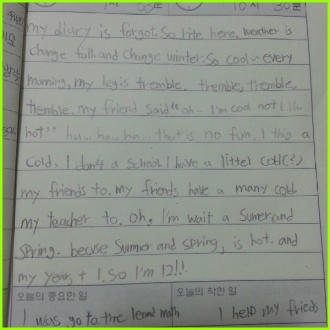 10시 30분
my diary is forgot. So rite here, weather is
change fall and change winter. So cool~ every
morning, my leg is tremble. tremble, tremble,
tremble. my friend said "oh~ I'm cool not I
hot" ha... ha... ha... that is no fun. I this a
cold. I don't a school I have a littel cold(?)
my friends to. my friends have a many cold
my teacher to. Oh, I'm wait a Sumer and
Spring. becuse Summer and spring, is hot. and
my year + 1. So I'm 12!!
오늘의 중요한 일 오늘의 착한 일
I was go to the math I help my friends